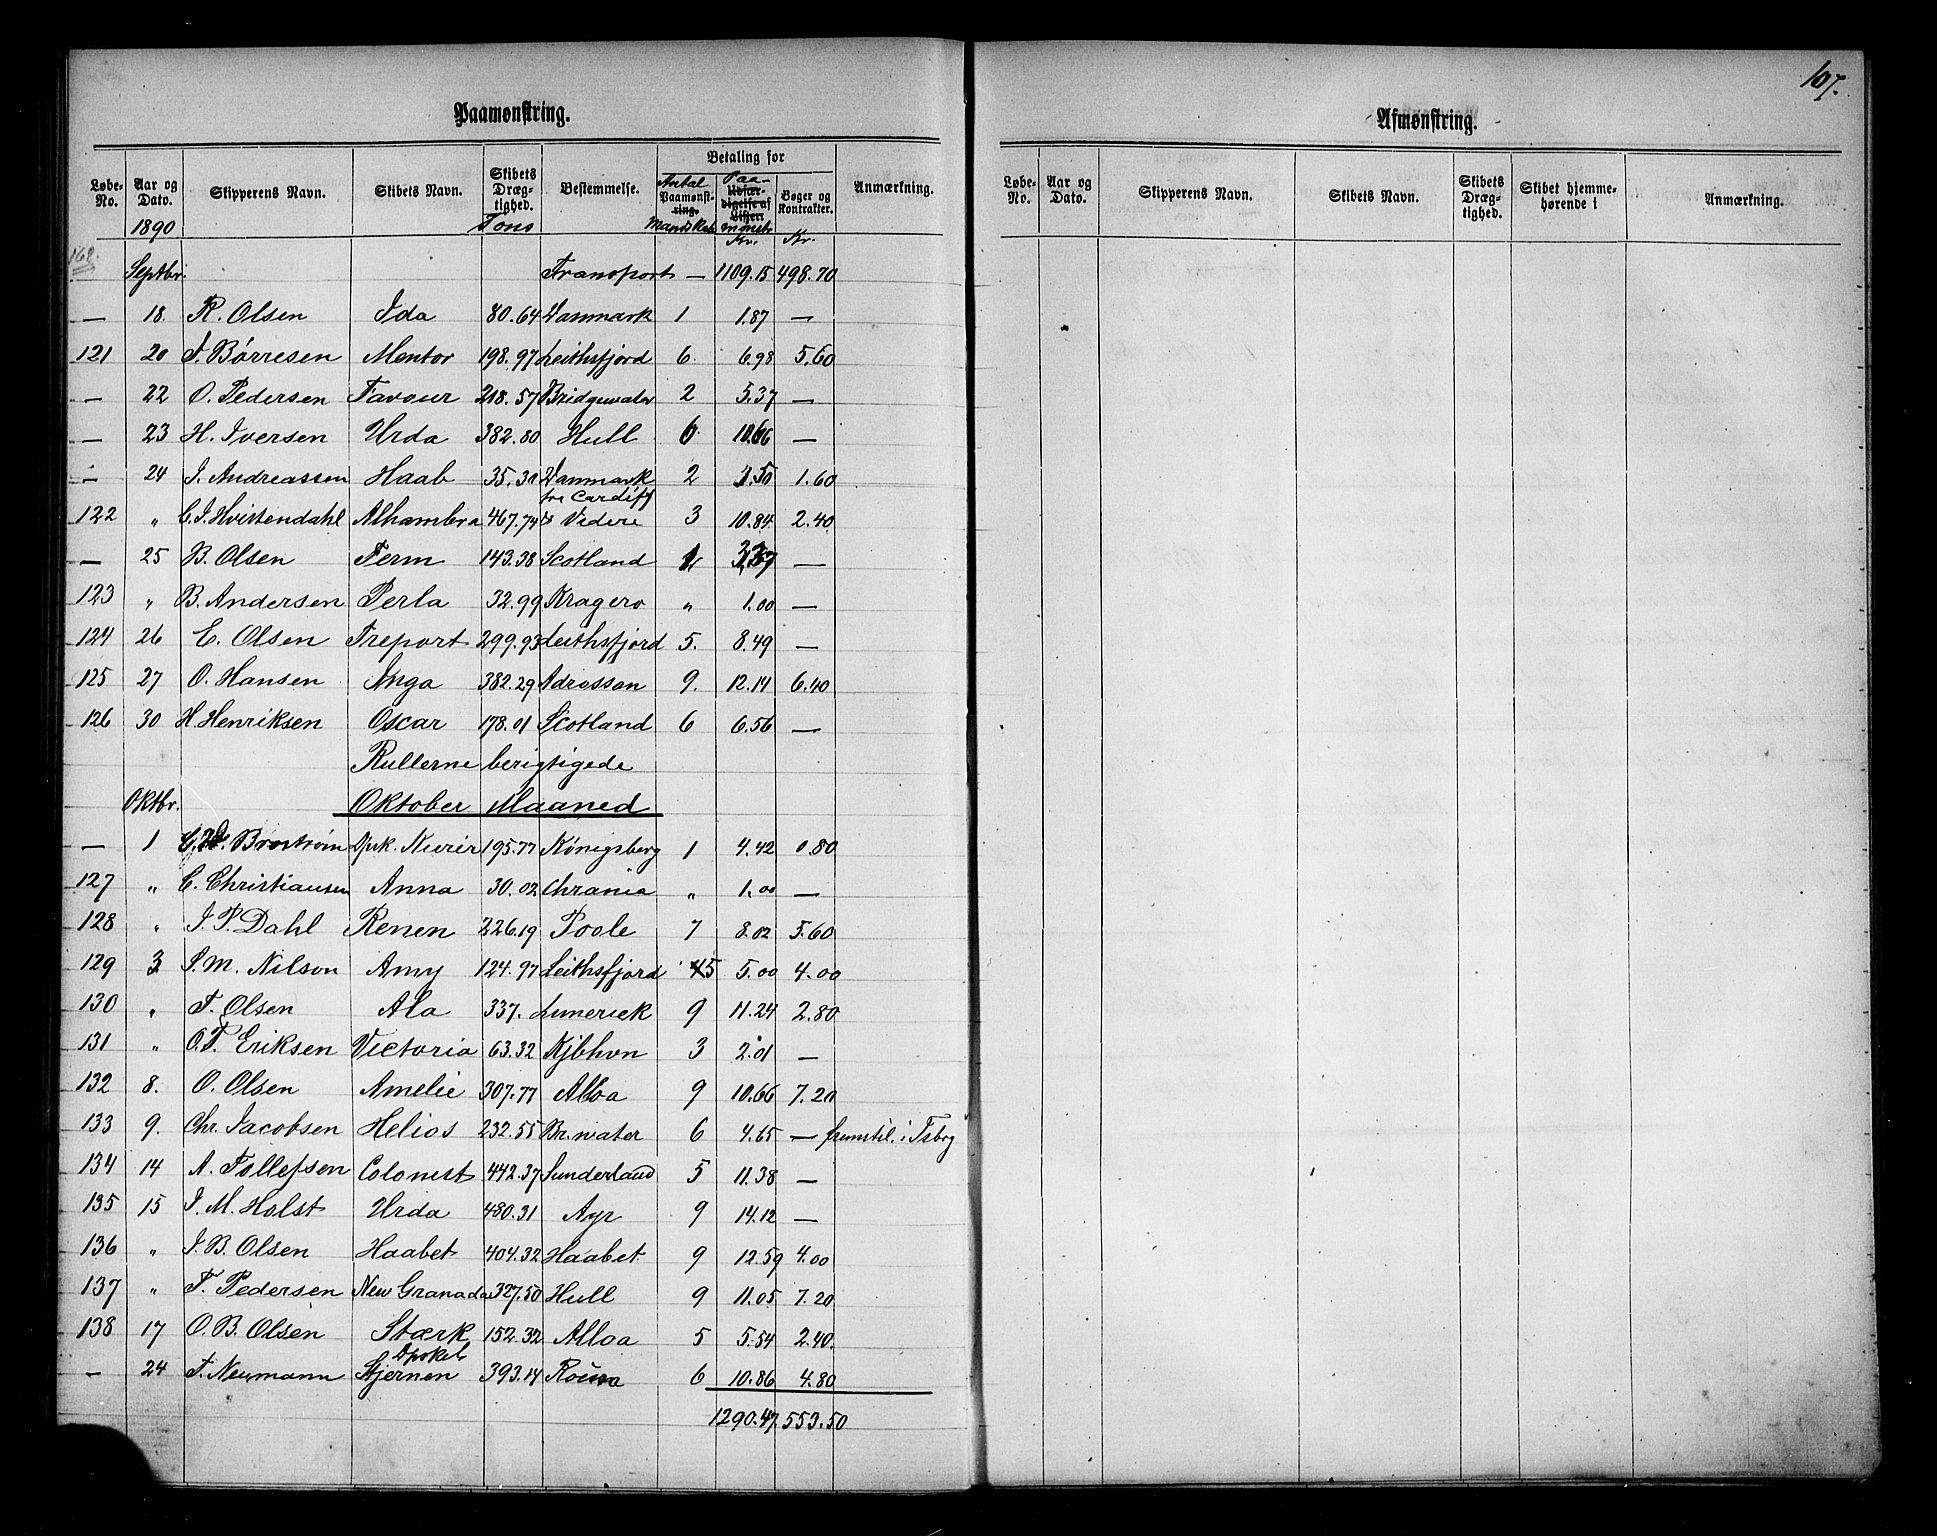 107.
Paamønstring.
Løbe-No. Aar og Dato. Skipperens Navn. Skibets Navn. Skibets Dræg-tighed. Bestemmelse. Betaling for Antal Paamønst-ring. Mandskab Paa- Udfær-digelse af Lister. mønstr. Bøger og Kontrakter. Anmærkning.
1890 Tons Kr. Kr.
162.
Septbr. Transport — 1109.15 498.70
— 18. R. Olsen Ida 80.64 Danmark 1 1.87 —
121 20 T. Børresen Mentor 198.97 Leithsfjord 6. 6.98 5.60
— 22 O. Pedersen Favour 218.57 Bridgewater 2 5.37 —
— 23 H. Iversen Urda 382.80 Hull 6 10.66 —
— 24 J. Andreassen Haab 35.30 Danmark 2 3.50 1.60
122 " C. J. Hvistendahl Alhambra 467.74 fra Cardiff & Videre 3 10.84 2.40
— 25 B. Olsen Ferm 143.38 Scotland —
123 " B. Andersen Perla 32.99 Kragerø " 1.00 —
124 26 E. Olsen Treport 299.93 Leithsfjord 5. 8.49 —
125 27 O. Hansen Inga 382.29 Adrossan 9. 12.14 6.40
126 30 H. Henriksen Oscar 178.01 Scotland 6 6.56 —
Rullerne berigtigede
Oktbr. Oktober Maaned
— 1 Brostrøm Dpsk. Kurir 195.77 Königsberg 1 4.42 0.80
127 " C. Christiansen Anna 30.02 Chrania " 1.00 —
128 " J. P. Dahl Renen 226.19 Poole 7 8.02 5.60
129 3 S. M. Nilson Amy 124.97 Leithsfjord 5 5.00 4.00
130 " T. Olsen Ala 337. Limerick 9 11.24 2.80
131 " O. T. Eriksen Victoria 63.32 Kjbhvn 3 2.01 —
132 8. O. Olsen Amelie 307.77 Alloa 9 10.66 7.20
133 9. Chr. Jacobsen Helios 232.55 Br.water 6 4.65 — fremstil. i Tsbrg
134 14 A. Tollefsen Colonist 442.37 Sunderland 5 11.38 —
135 15 J. M. Holst Urda 480.31 Ayr 9 14.12 —
136 " J. B. Olsen Haabet 404.32 Haabet 9 12.59 4.00
137 " T. Pedersen New Granada 327.50 Hull 9 11.05 7.20
138 17 O. B. Olsen Stærk 152.32 Alloa 5 5.54 2.40.
— 24 T. Neumann Stjernen 393.14 6 10.86 4.80
1290.47. 553.50
Afmønstring.
Løbe-No. Aar og Dato. Skipperens Navn. Skibets Navn. Skibets Dræg-tighed. Skibet hjemme-hørende i Anmærkning.